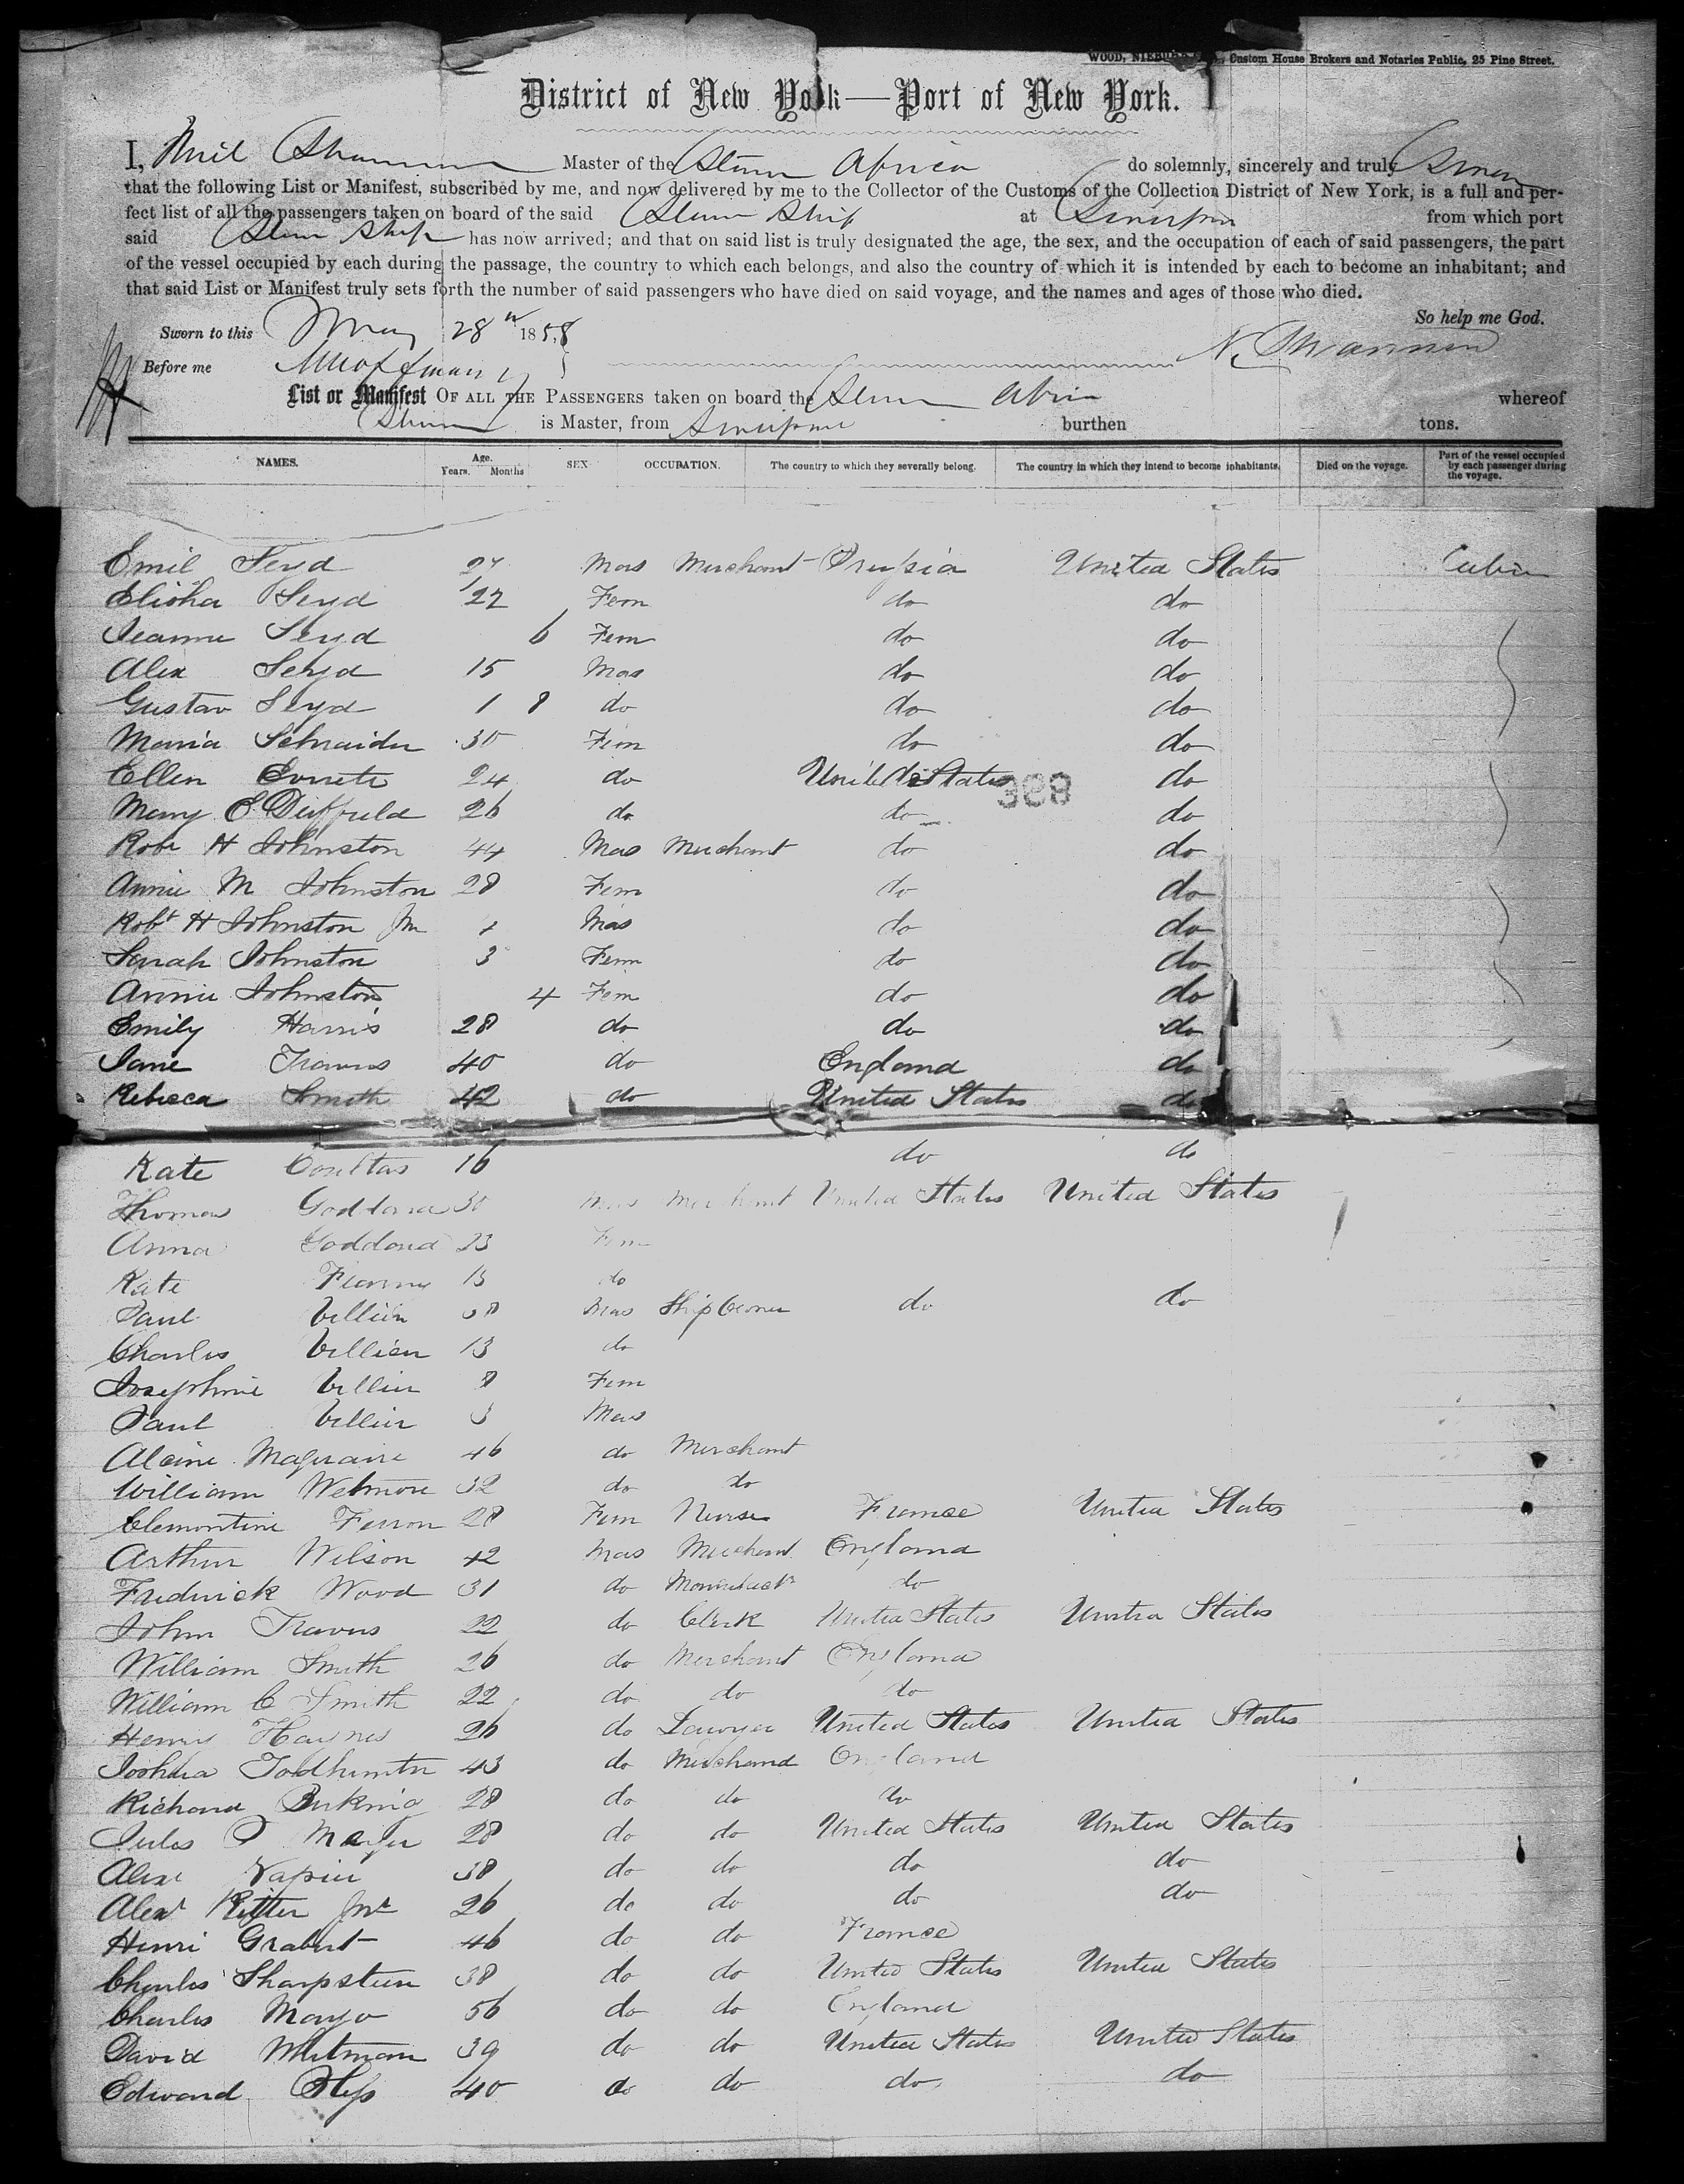 WOOD, Custom House Brokers and Notaries Public, 25 Pine Street.
District of New York—Port of New York.
I, Neil Shannon Master of the Steam Africa do solemnly, sincerely and truly swear
that the following List or Manifest, subscribed by me, and now delivered by me to the Collector of the Customs of the Collection District of New York, is a full and per-
fect list of all the passengers taken on board of the said Steam Ship at Liverpool from which port
said Steam Ship has now arrived; and that on said list is truly designated the age, the sex, and the occupation of each of said passengers, the part
of the vessel occupied by each during the passage, the country to which each belongs, and also the country of which it is intended by each to become an inhabitant; and
that said List or Manifest truly sets forth the number of said passengers who have died on said voyage, and the names and ages of those who died.
So help me God.
Sworn to this May 28th 1858
N. Shannon
Before me
List or Manifest OF ALL THE PASSENGERS taken on board the Steam Africa whereof
Shannon is Master, from Liverpool burthen tons.
NAMES. Age. Years. Months SEX OCCUPATION. The country to which they severally belong. The country in which they intend to become inhabitants. Died on the voyage. Part of the vessel occupied by each passenger during the voyage.
Emil Seyd 27 Mas Merchant Prussia United States Cabin
Elisha Seyd 22 Fem do do
Jeanne Seyd 6 Fem do do
Alex Seyd 15 Mas do do
Gustav Seyd 1 8 do do do
Maria Schnaider 30 Fem do do
Ellen 24 do United States do
368
Mary E Duffield 26 do do do
Robt H Johnston 44 Mas Merchant do do
Annie M Johnston 28 Fem do do
Robt H Johnston Jnr Mas do do
Sarah Johnston 3 Fem do do
Annie Johnston 4 Fem do do
Emily Harris 28 do do do
Jane Travers 40 do England do
Rebecca Smith 42 do United States do
Kate Coultas 16 do do
Thomas Goddard 30 Mas Merchant United States United States
Anna Goddard 23 Fem
Kate 13 do
Paul 38 Mas Ship Owner do do
Charles 13 do
Josephine 8 Fem
Paul 3 Mas
46 do Merchant
William Wetmore 32 do do
Clemontine Ferron 28 Fem Nurse France United States
Arthur Wilson 42 Mas Merchant England
Fredrick Wood 31 do do
John Travers 22 do Clerk United States United States
William Smith 26 do Merchant England
William C Smith 22 do do do
Henry Haynes 26 do Lawyer United States United States
Joshua Todhunter 43 do Merchand England
Richard 28 do do do
Jules 28 do do United States United States
Alex Napier 38 do do do do
Alexr Ritter Jnr 26 do do do do
Henri Grabut 46 do do France
Charles Sharpsteen 38 do do United States United States
Charles Mayo 56 do do England
David Whitman 39 do do United States United States
Edward 40 do do do do